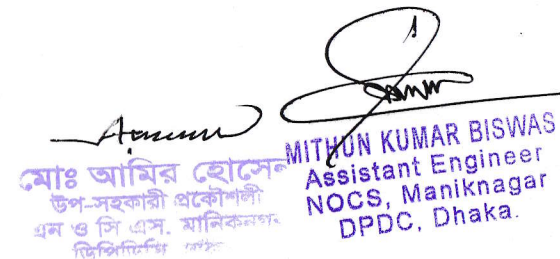 মোঃ আমির হোসেন
উপ-সহকারী প্রকৌশলী
এন ও সি এস. মানিকনগর
MITHUN KUMAR BISWAS
Assistant Engineer
NOCS, Maniknagar
DPDC, Dhaka.